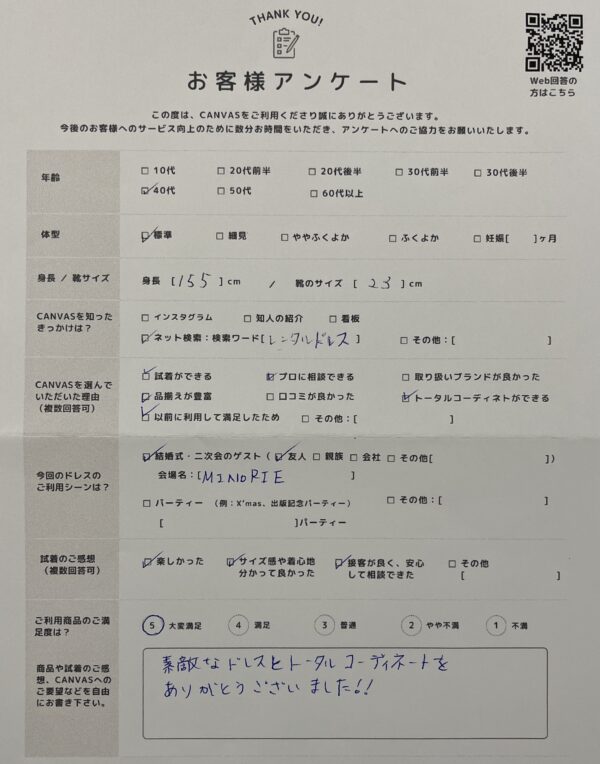 THANK YOU!
お客様アンケート
Web回答の
方はこちら
この度は、CANVASをご利用くださり誠にありがとうございます。
今後のお客様へのサービス向上のために数分お時間をいただき、アンケートへのご協力をお願いいたします。
年齢
□ 10代 □ 20代前半 □ 20代後半 □ 30代前半 □ 30代後半
☑ 40代 □ 50代 □ 60代以上
体型
☑ 標準 □ 細見 □ ややふくよか □ ふくよか □ 妊娠[ ]ヶ月
身長 / 靴サイズ
身長 [155] cm / 靴のサイズ [ 23 ] cm
CANVASを知った
きっかけは?
□ インスタグラム □ 知人の紹介 □ 看板
☑ ネット検索:検索ワード[レンタルドレス] □ その他:[ ]
CANVASを選んで
いただいた理由
(複数回答可)
☑ 試着ができる ☑ プロに相談できる □ 取り扱いブランドが良かった
☑ 品揃えが豊富 □ 口コミが良かった ☑ トータルコーディネトができる
☑ 以前に利用して満足したため □ その他:[ ]
今回のドレスの
ご利用シーンは?
☑ 結婚式・二次会のゲスト(☑ 友人 □ 親族 □ 会社 □ その他[ ])
会場名:[MINORIE ]
□ パーティー (例:X'mas、出版記念パーティー) □ その他:[ ]
[ ]パーティー
試着のご感想
(複数回答可)
☑ 楽しかった ☑ サイズ感や着心地
分かって良かった ☑ 接客が良く、安心
して相談できた □ その他
[ ]
ご利用商品のご満
足度は?
⑤ 大変満足 ④ 満足 ③ 普通 ② やや不満 ① 不満
商品や試着のご感
想、CANVASへの
ご要望などを自由
にお書き下さい。
素敵なドレスとトータルコーディネートを
ありがとうございました!!